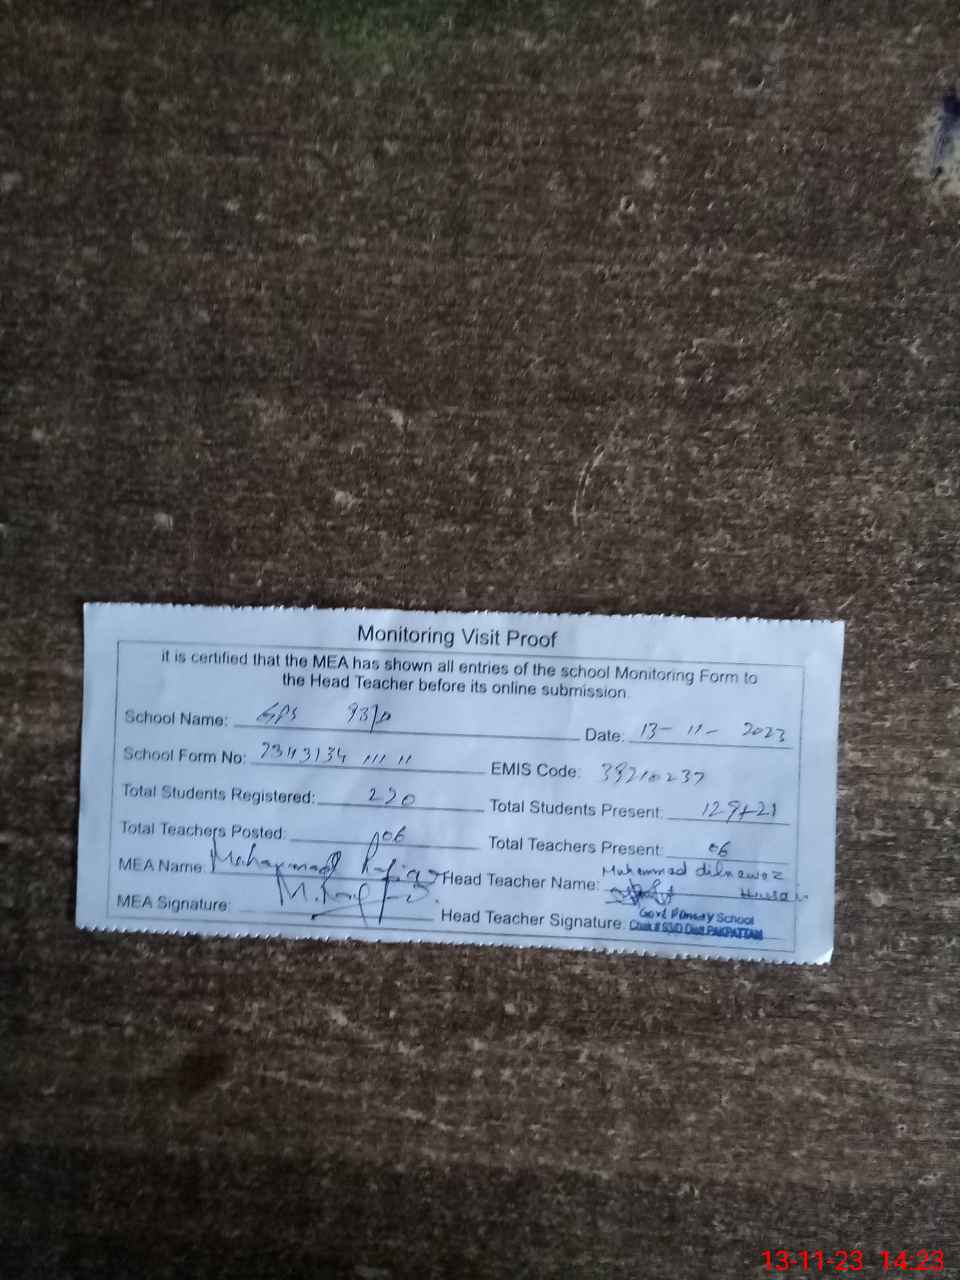 Monitoring Visit Proof
it is certified that the MEA has shown all entries of the school Monitoring Form to
the Head Teacher before its online submission.
School Name: GPS 93/D Date: 13-11-2023
School Form No: EMIS Code: 39210237
Total Students Registered: 220 Total Students Present: 129+21
Total Teachers Posted: 06 Total Teachers Present: 06
MEA Name: Muhammad Rafiq Head Teacher Name: Muhammad dilnawaz
Hussain
MEA Signature: Head Teacher Signature:
Govt Primary School
Chak # 93/D Distt. PAKPATTAN
13-11-23 14:23